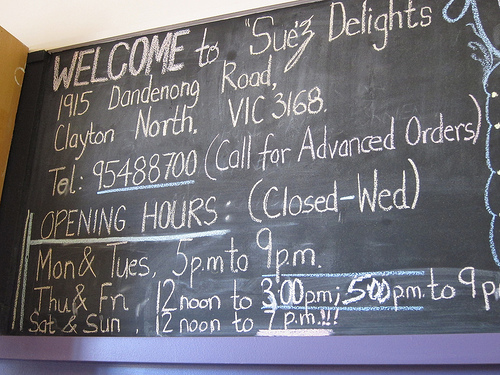 WELCOME to "Sue'z Delights
1915 Dandenong Road,
Clayton North, VIC 3168.
Tel: 95488700 (Call for Advanced Orders)
OPENING HOURS: (Closed-Wed)
Mon & Tues, 5p.m to 9p.m.
Thu & Fri 12 noon to 3:00p.m; 5:00p.m. to 9p
Sat & Sun, 12 noon to 7p.m!!!